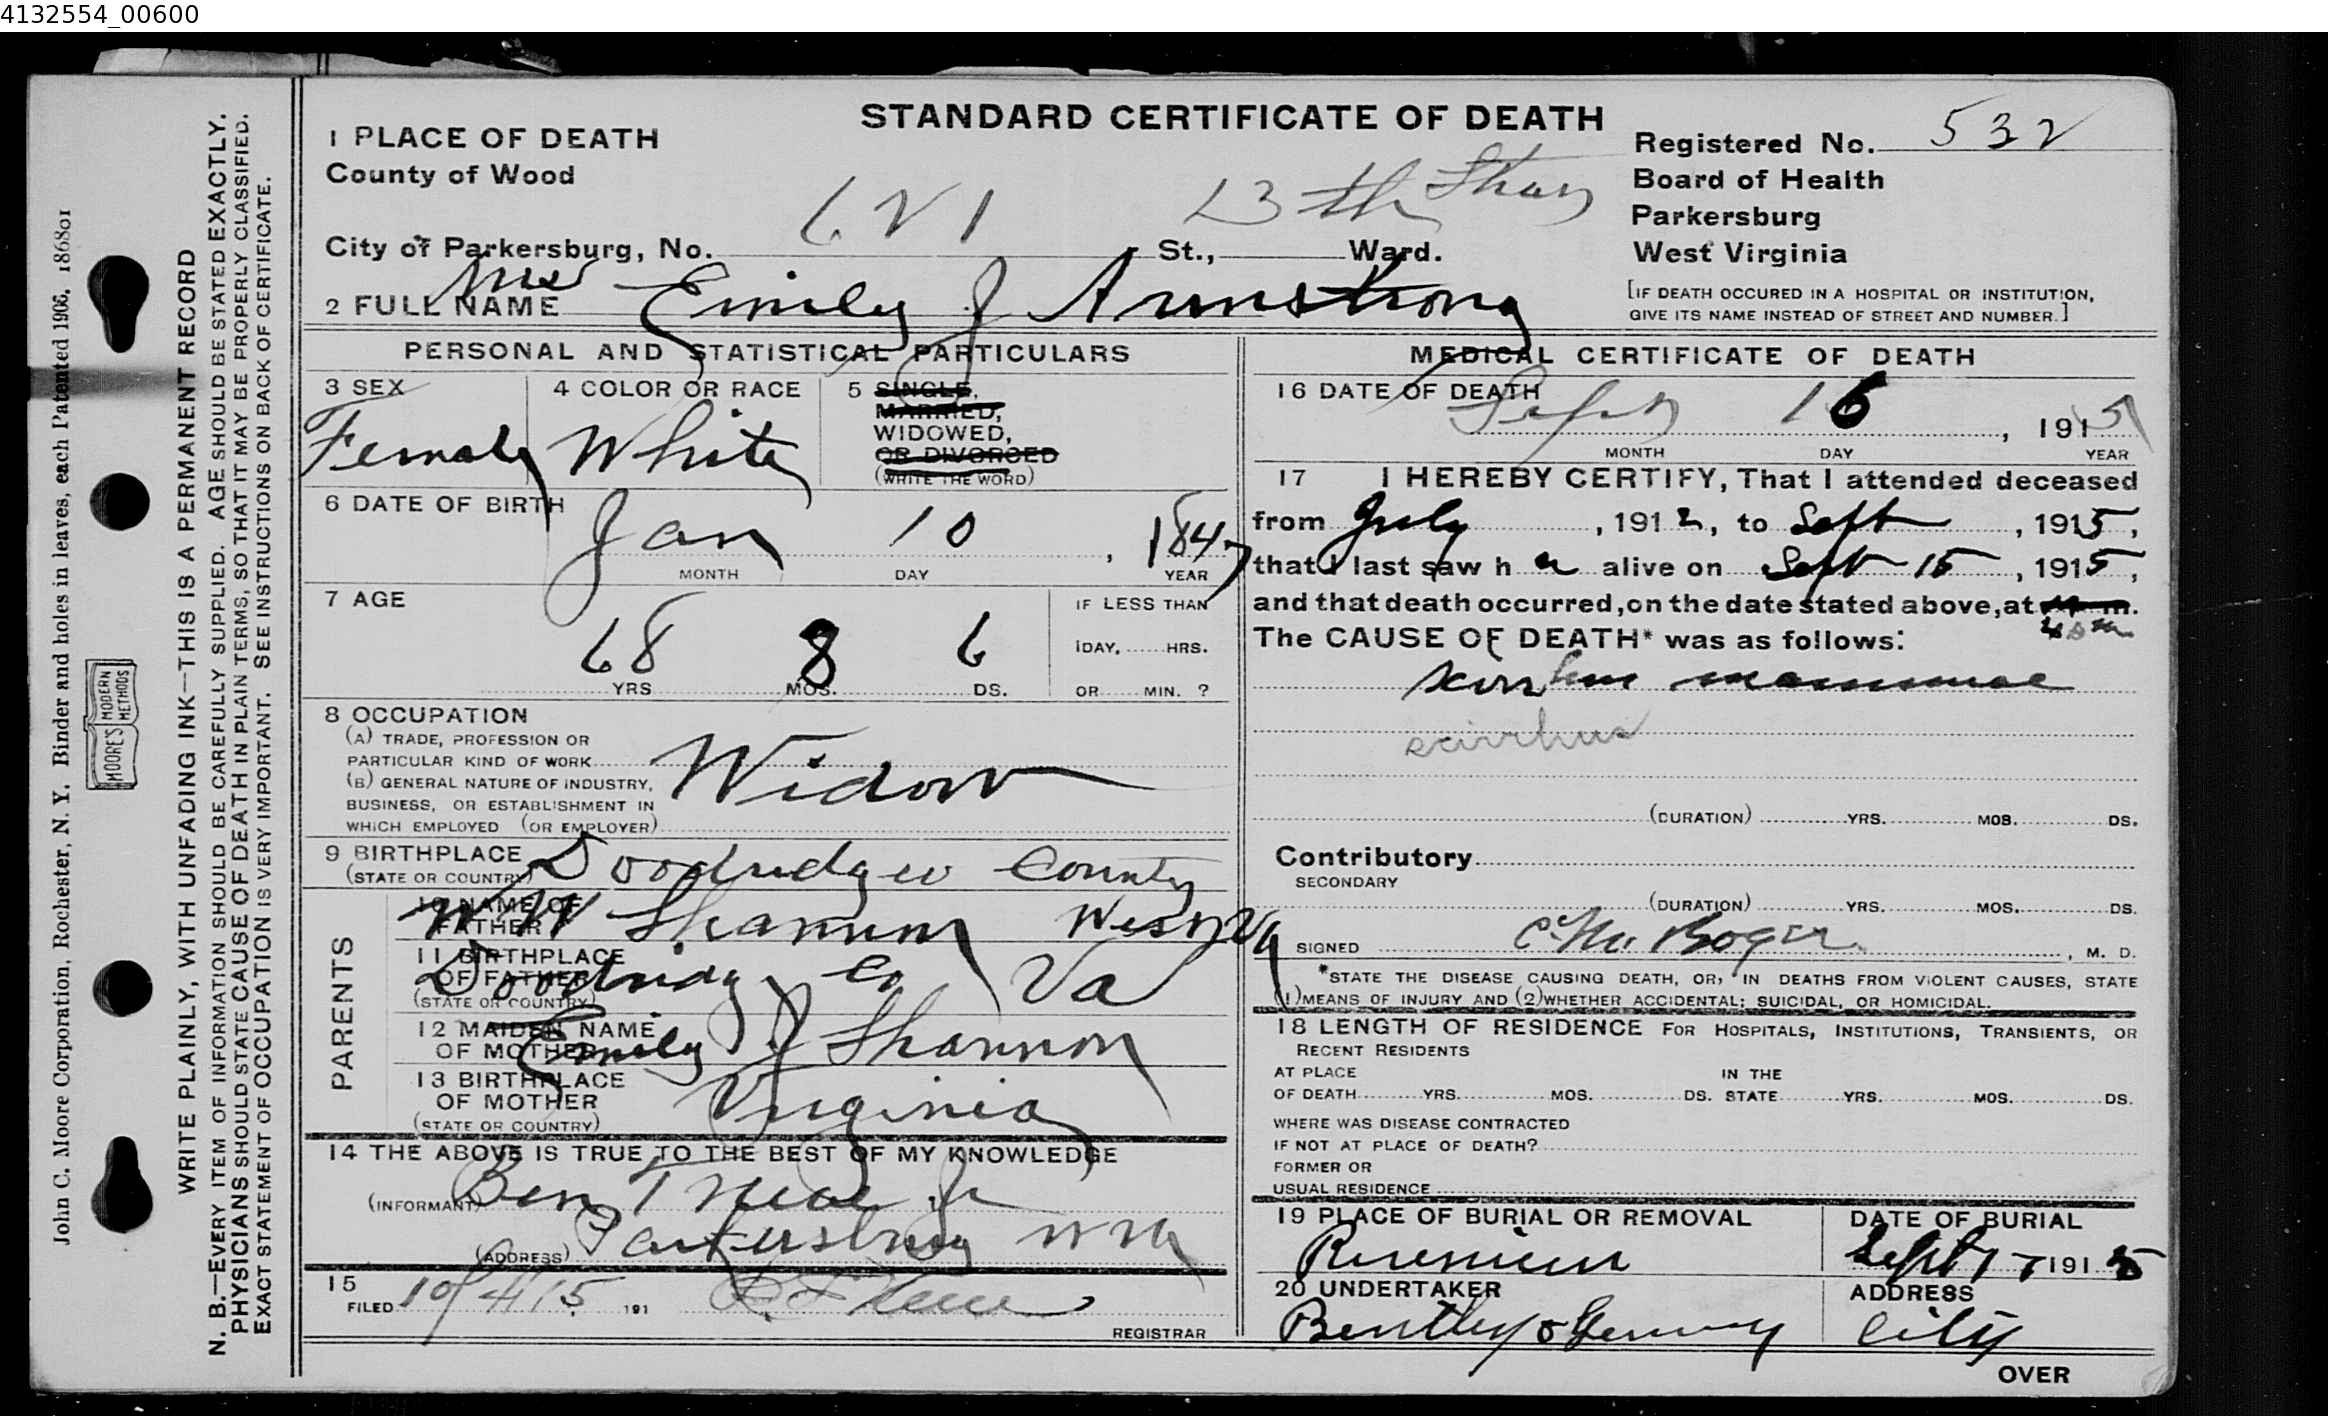 4132554_00600
STANDARD CERTIFICATE OF DEATH
1 PLACE OF DEATH
County of Wood
City of Parkersburg, No. 621 13th St., Ward.
Registered No. 532
Board of Health
Parkersburg
West Virginia
[IF DEATH OCCURED IN A HOSPITAL OR INSTITUTION,
GIVE ITS NAME INSTEAD OF STREET AND NUMBER.]
2 FULL NAME Mrs Emily J Armstrong
PERSONAL AND STATISTICAL PARTICULARS
3 SEX
Female
4 COLOR OR RACE
White
5 SINGLE,
MARRIED,
WIDOWED,
OR DIVORCED
(WRITE THE WORD)
6 DATE OF BIRTH
Jan 10, 1847
MONTH DAY YEAR
7 AGE
68 8 6
YRS MOS. DS.
IF LESS THAN
1DAY, HRS.
OR MIN. ?
8 OCCUPATION
(A) TRADE, PROFESSION OR
PARTICULAR KIND OF WORK
Widow
(B) GENERAL NATURE OF INDUSTRY,
BUSINESS, OR ESTABLISHMENT IN
WHICH EMPLOYED (OR EMPLOYER)
9 BIRTHPLACE Doodridge County
(STATE OR COUNTRY)
West Va
PARENTS
10 NAME OF
FATHER
W W Shannon
11 BIRTHPLACE
OF FATHER
Doodridge Co Va
(STATE OR COUNTRY)
12 MAIDEN NAME
OF MOTHER
Emily J Shannon
13 BIRTHPLACE
OF MOTHER
Virginia
(STATE OR COUNTRY)
14 THE ABOVE IS TRUE TO THE BEST OF MY KNOWLEDGE
(INFORMANT) Ben T Neal Jr
(ADDRESS) Parkersburg W Va
15
FILED 10/4/15 191
REGISTRAR
MEDICAL CERTIFICATE OF DEATH
16 DATE OF DEATH
Sept 16, 1915
MONTH DAY YEAR
17 I HEREBY CERTIFY, That I attended deceased
from July, 1912, to Sept, 1915,
that I last saw h er alive on Sept 15, 1915,
and that death occurred, on the date stated above, at m.
The CAUSE OF DEATH* was as follows:
skirrhus mammae
scirrhus
(DURATION) YRS. MOS. DS.
Contributory
SECONDARY
(DURATION) YRS. MOS. DS.
SIGNED C. M. Boger, M. D.
*STATE THE DISEASE CAUSING DEATH, OR, IN DEATHS FROM VIOLENT CAUSES, STATE
(1) MEANS OF INJURY AND (2) WHETHER ACCIDENTAL; SUICIDAL, OR HOMICIDAL.
18 LENGTH OF RESIDENCE FOR HOSPITALS, INSTITUTIONS, TRANSIENTS, OR
RECENT RESIDENTS
AT PLACE
OF DEATH YRS. MOS. DS.
IN THE
STATE YRS. MOS. DS.
WHERE WAS DISEASE CONTRACTED
IF NOT AT PLACE OF DEATH?
FORMER OR
USUAL RESIDENCE
19 PLACE OF BURIAL OR REMOVAL
DATE OF BURIAL
Sept 17 1915
20 UNDERTAKER
Bentley &
ADDRESS
City
OVER
WRITE PLAINLY, WITH UNFADING INK—THIS IS A PERMANENT RECORD
N. B.—EVERY ITEM OF INFORMATION SHOULD BE CAREFULLY SUPPLIED. AGE SHOULD BE STATED EXACTLY.
PHYSICIANS SHOULD STATE CAUSE OF DEATH IN PLAIN TERMS, SO THAT IT MAY BE PROPERLY CLASSIFIED.
EXACT STATEMENT OF OCCUPATION IS VERY IMPORTANT. SEE INSTRUCTIONS ON BACK OF CERTIFICATE.
John C. Moore Corporation, Rochester, N. Y. Binder and holes in leaves, each Patented 1906, 186801
MOORE'S MODERN METHODS